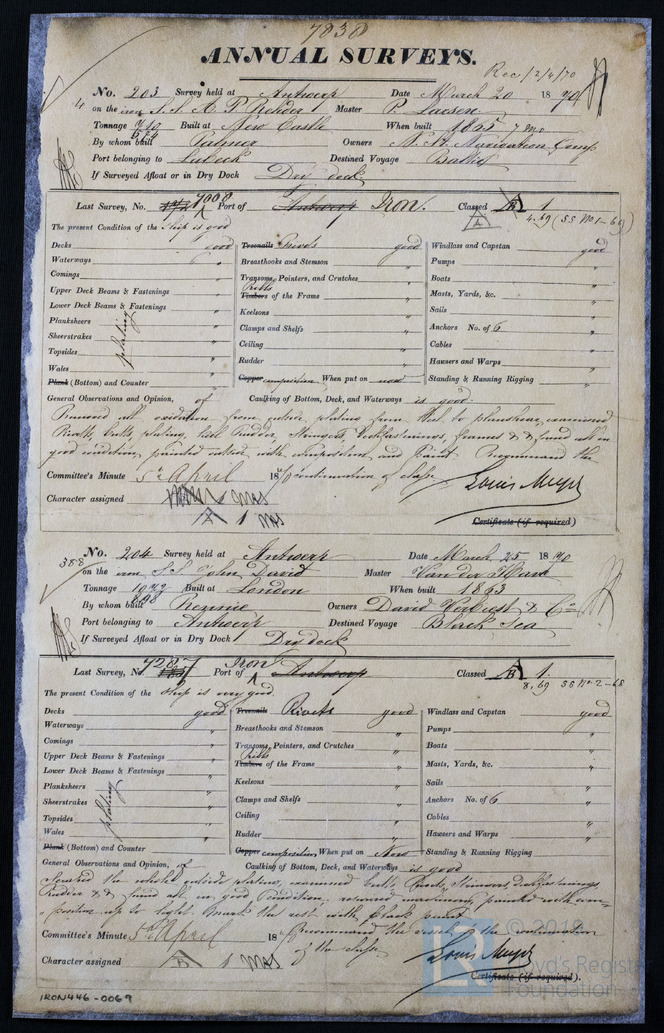 7838
ANNUAL SURVEYS.
Rec/2/4/70
No. 203 Survey held at Antwerp Date March 20 1870
4 on the iron S.S. A P Rehder Master P. Laesen
Tonnage Built at New Castle When built 1865 7 mo
By whom built Palmer Owners Navigation Comp
Port belonging to Lubeck Destined Voyage Baltic
If Surveyed Afloat or in Dry Dock Dry dock
Last Survey, No. 7008 Port of Antwerp Iron. Classed A 1
4.69 (SS No 1-69)
The present Condition of the Ship is good
Decks good Treenails Rivets good Windlass and Capstan good
Waterways " Breasthooks and Stemson " Pumps "
Comings " Transoms, Pointers, and Crutches " Boats "
Upper Deck Beams & Fastenings " Timbers Ribbs of the Frame " Masts, Yards, &c. "
Lower Deck Beams & Fastenings " Keelsons " Sails "
Planksheers " Clamps and Shelfs " Anchors No. of 6 "
Sheerstrakes plating " Ceiling " Cables "
Topsides " Rudder " Hawsers and Warps "
Wales " Copper composition When put on now Standing & Running Rigging "
Plank (Bottom) and Counter "
General Observations and Opinion, of Caulking of Bottom, Deck, and Waterways is good
Removed all oxidation from outside plating from Keel to plansheer, examined
Rivetts, butts, plating, keel Rudder, Deckfastenings, frames & & found all in
good condition, painted outside with composition and paint. Recommend the
Committee's Minute 5th April 1870 continuation of class.
Louis Meyer
Character assigned
A 1 Certificate (if required)
No. 204 Survey held at Antwerp Date March 25 1870
388 on the iron S.S. John David Master Van der
Tonnage Built at London When built 1863
By whom built Rennie Owners David Verbist & Co
Port belonging to Antwerp Destined Voyage Black Sea
If Surveyed Afloat or in Dry Dock Dry dock
Last Survey, No. 7287 Port of Iron Antwerp Classed A 1.
8.69 SS No 2-68
The present Condition of the Ship is very good.
Decks good Treenails Rivets good Windlass and Capstan good
Waterways " Breasthooks and Stemson " Pumps "
Comings " Transoms, Pointers, and Crutches " Boats "
Upper Deck Beams & Fastenings " Timbers Ribbs of the Frame " Masts, Yards, &c. "
Lower Deck Beams & Fastenings " Keelsons " Sails "
Planksheers " Clamps and Shelfs " Anchors No. of 6 "
Sheerstrakes plating " Ceiling " Cables "
Topsides " Rudder " Hawsers and Warps "
Wales " Copper composition When put on Now Standing & Running Rigging "
Plank (Bottom) and Counter "
General Observations and Opinion, of Caulking of Bottom, Deck, and Waterways is good
the whole outside plating, examined butts, Rivets, Deckfastenings
Rudder & & found all in good condition, painted with com-
position up to light mark the rest with black paint
Committee's Minute 5th April 18 Recommend the continuation
of the class
Louis Meyer
Character assigned A 1
Certificate (if required).
IRON446-0069
© 2019
Lloyd's Register
Foundation